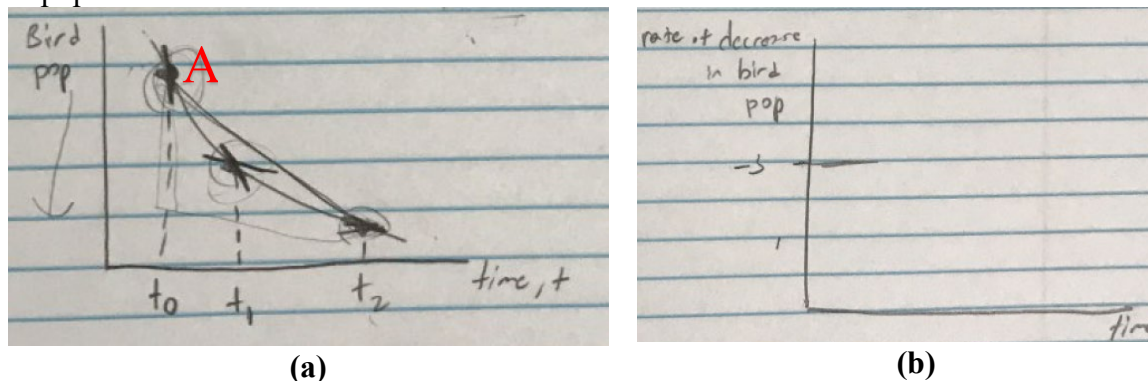 Bird
pop
A
t0 t1 t2
time, t
(a)
rate of decrease
in bird
pop
-3
time
(b)